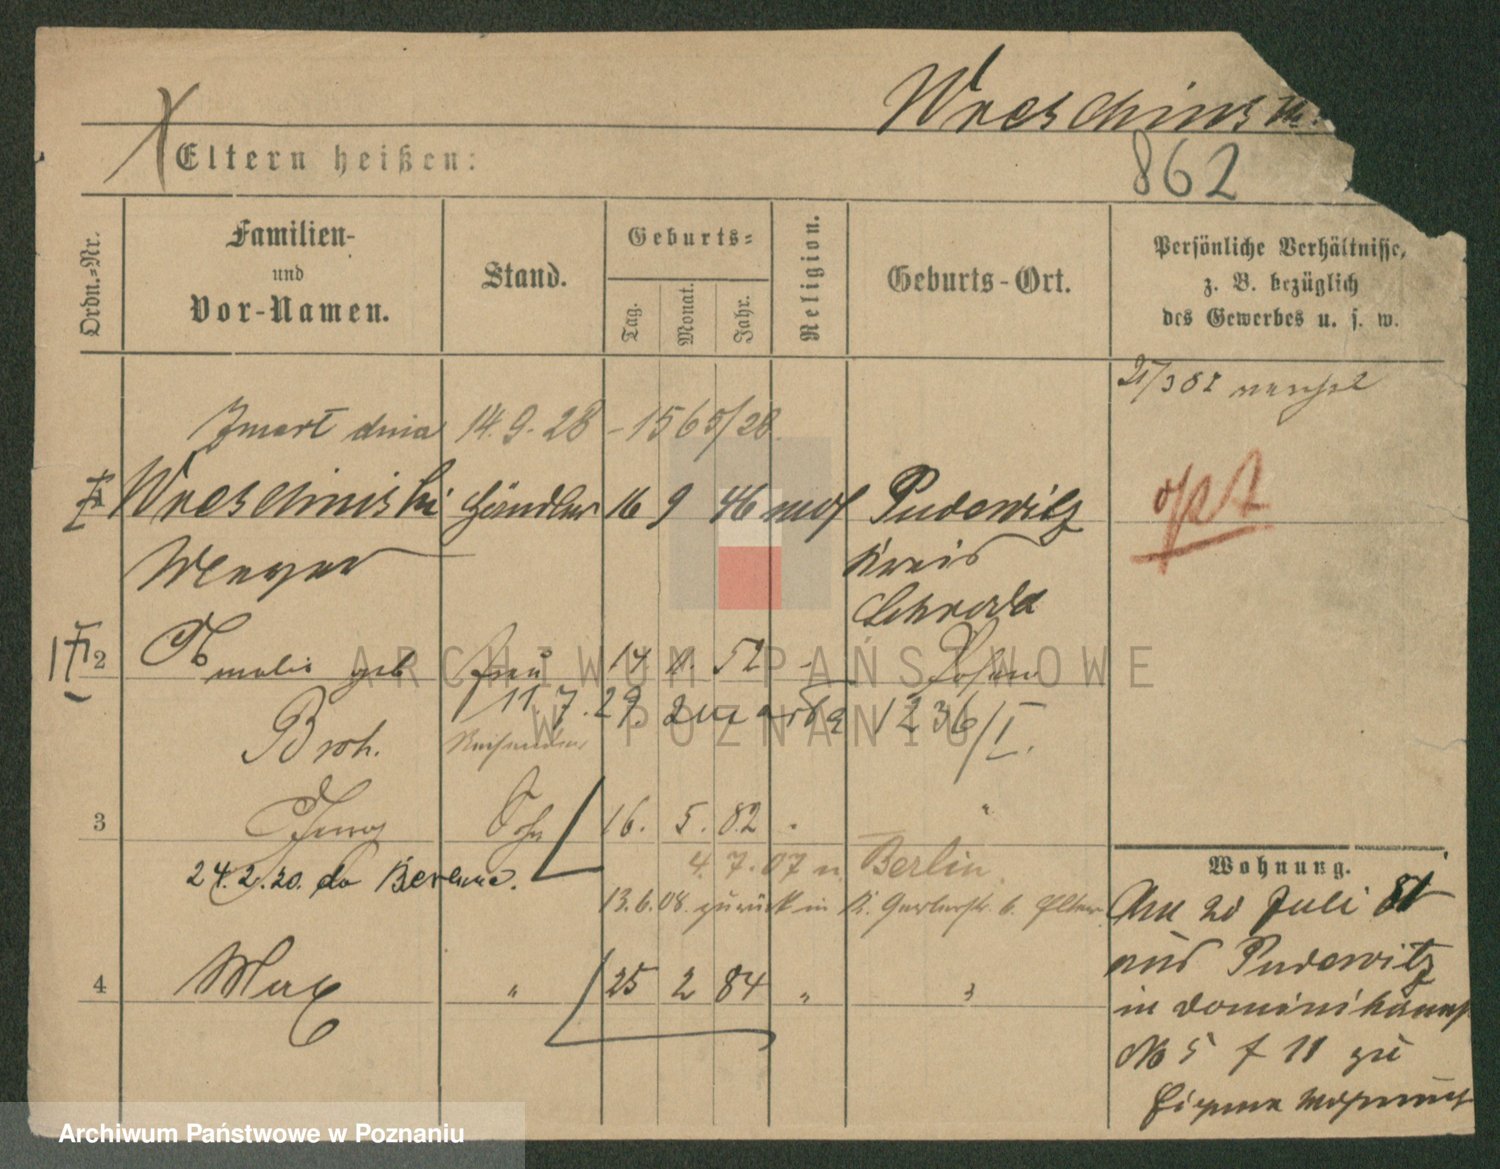 Wreschinski
862
Eltern heißen:
Ordn.=Nr.
Familien-
und
Vor-Namen.
Stand.
Geburts=
Tag.
Monat.
Jahr.
Religion.
Geburts-Ort.
Persönliche Verhältnisse,
z. B. bezüglich
des Gewerbes u. s. w.
Zmarł dnia 14.9.28 - 1565/28
Wreschinski Händler 16 9 46 mos Pudewitz
Meyer Kreis
Schroda
2 Amalie geb Frau 14 52 Posen
11.7.29. zmarła 1236/I.
Broh. Reisender
3 Sohn 16. 5. 82 "
24.2.20. do Berlina. 4.7.07 n. Berlin
13.6.08. zurück in K. Gerberstr. 6. Eltern
4 Max " 25 2 84 " "
Wohnung.
Am 20 Juli 81
aus Pudewitz
in Dominikaner
No 5 f 11 zu
Eigene Wohnung
ARCHIWUM PAŃSTWOWE
W POZNANIU
Archiwum Państwowe w Poznaniu